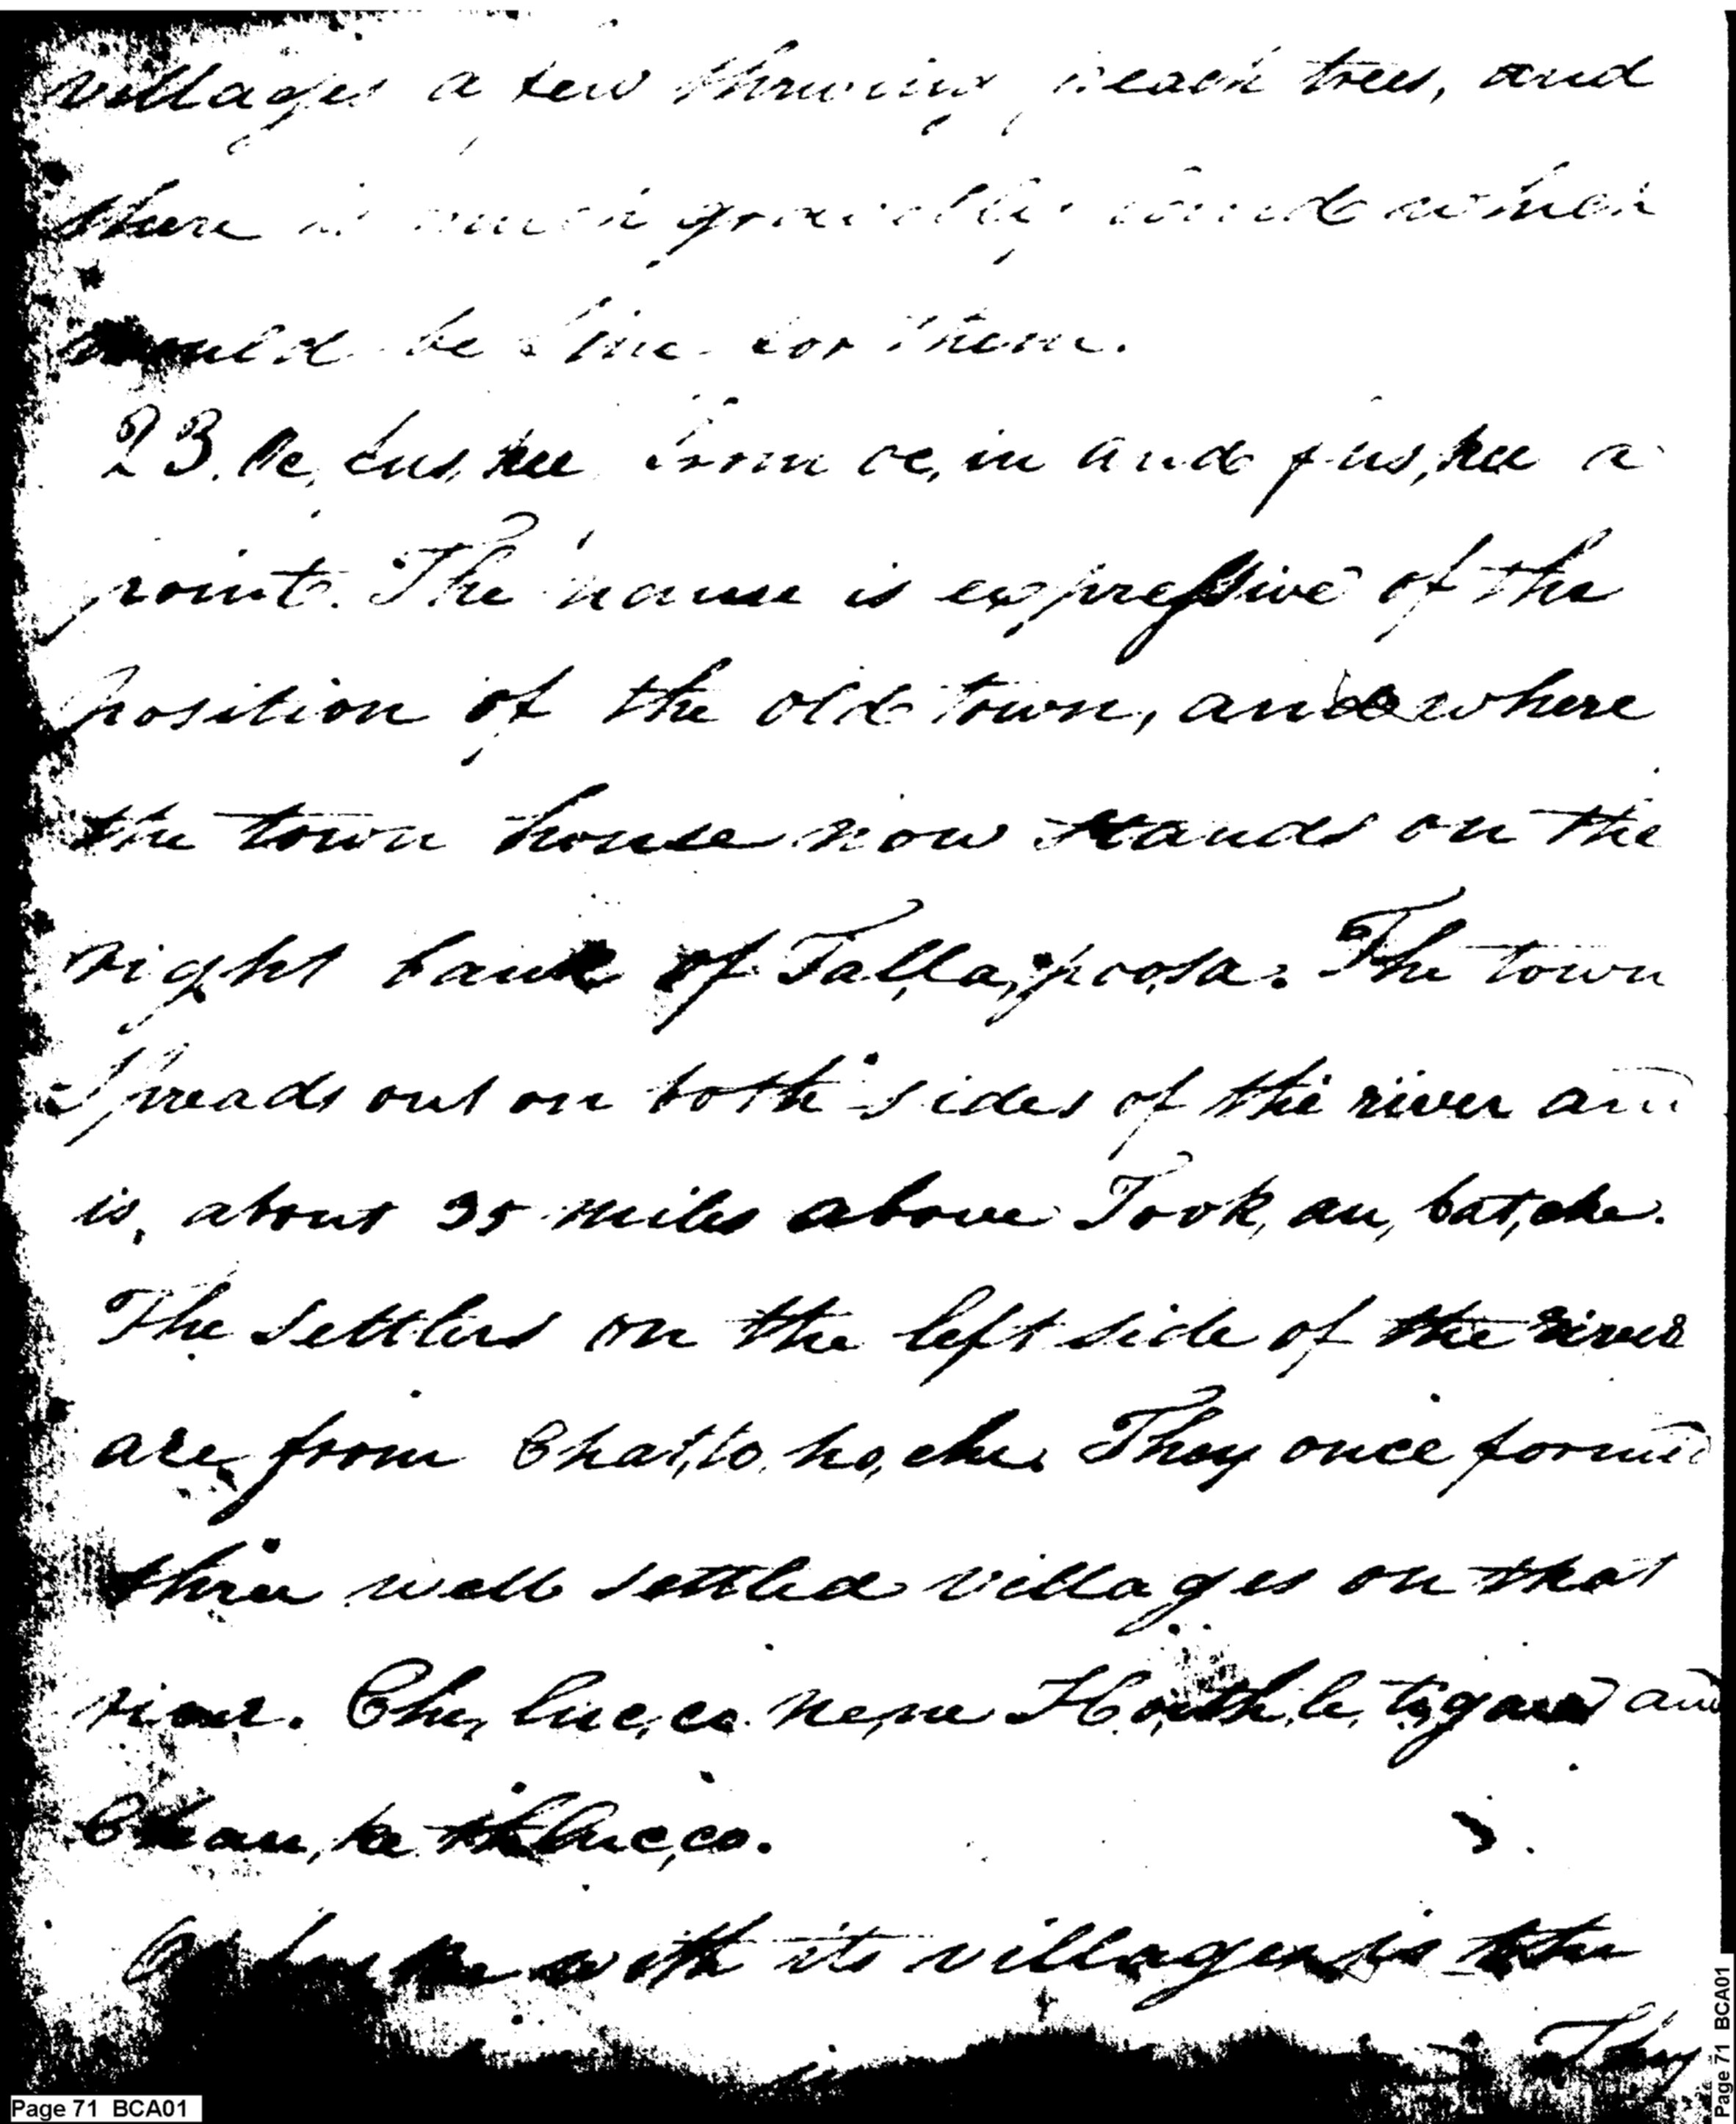 villages a few thriving peach trees, and
there is much gravelly land which
would be fine for them.
23. Oc, fus, kee from oc, in and fus, kee a
point. The name is expressive of the
position of the old town, and where
the town house now stands on the
right bank of Tal,la,poo,sa. The town
spreads out on both sides of the river and
is, about 35 miles above Took, au, bat, che.
The settlers on the left side of the river
are from Chat, to, ho, che. They once formed
three well settled villages on that
river. Che, luc, co ne, ne Ho, ith, le, ti, gau and
Chau, ke thluc, co.
with its villages is the
They
Page 71 BCA01
Page 71 BCA01